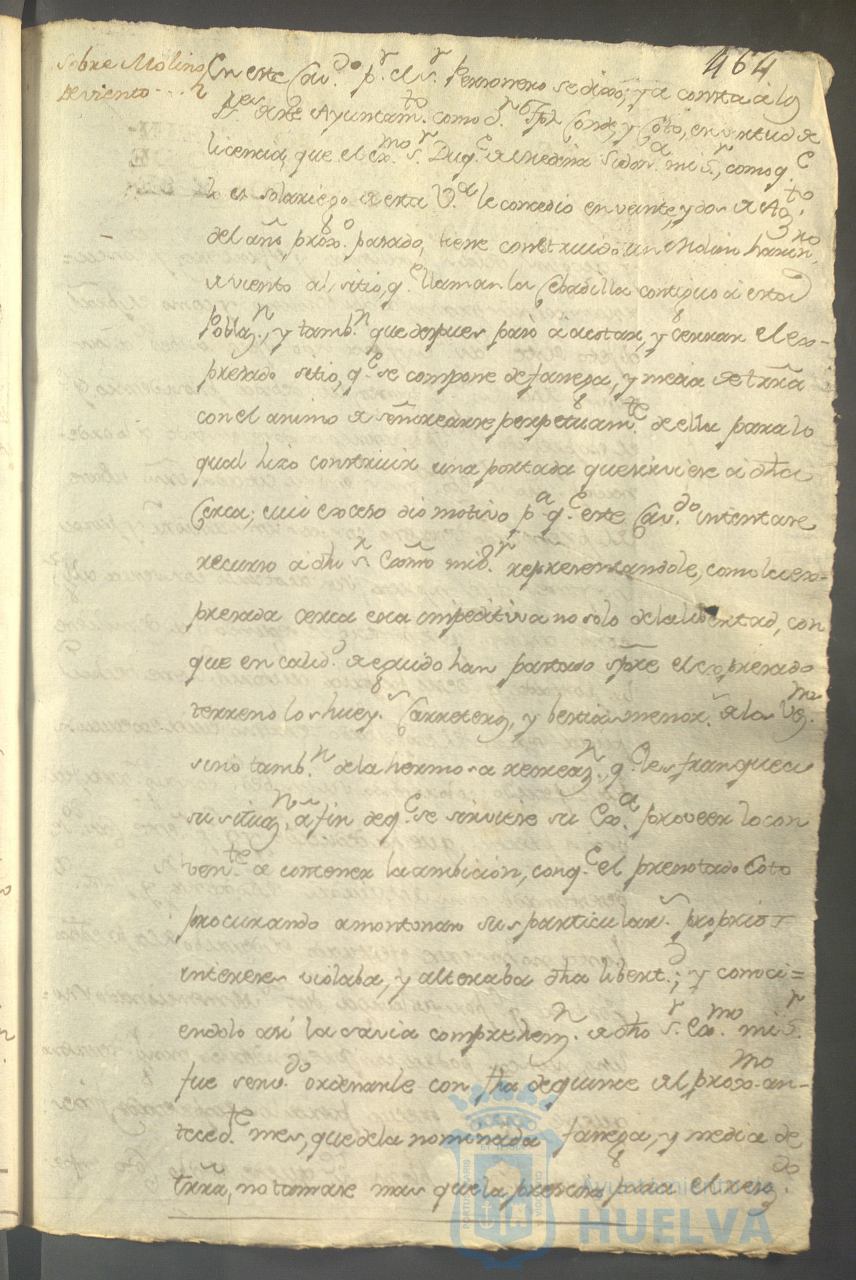 464
Sobre Molino
de viento
En este Cav.do p.r el s.r Perssonero se dixo, ya consta a los
S.res de este Ayuntam.to como d.n Jph Conde y Coto, en virtud de
licencia, que el ex.mo s.r Duq.e de Medina Sidon.a mi s.r, como q.e
lo es solariego de esta V.a le concedio en veinte, y dos de Ag.to
del año prox.o pasado, tiene construido un Molino harin.ro
de viento al sitio, q.e llaman la Cebadilla contiguo a esta
Poblaz.n, y tamb.n que despues paso a acotar, y cerrar el ex-
presado sitio, q.e se compone de fanega, y media de trra
con el animo de señorearse perpetuam.te de ella para lo
qual hizo construir una portada que sirviese a dha
Cerca; cuio exceso dio motivo p.a q.e este Cav.do intentase
recurso a dho s.r Exmo mi s.r representandole, como la ex-
presada cerca era impeditiva no solo de la libertad, con
que en calid.d de egido han pastado spre el expresado
terreno los huey.s Carreteros, y bestias menor.s de la Vez.
sino tamb.n de la hermosa recreaz.n, q.e les franquea
su situaz.n, a fin de q.e se sirviese su Ex.a proveer lo con
ven.te a contener la ambición, con q.e el prenotado Coto
procurando amontonar sus particular.s proprios
intereses violaba, y alteraba dha libert.d; y conoci=
endolo asi la savia comprehens.n de dho s.r Ex.mo mi s.r
fue servido ordenarle con fha de quince del prox.mo an-
teced.te mes, que de la nominada fanega, y media de
trra, no tomase mas que la precisa para el
Ayuntamiento de
HUELVA